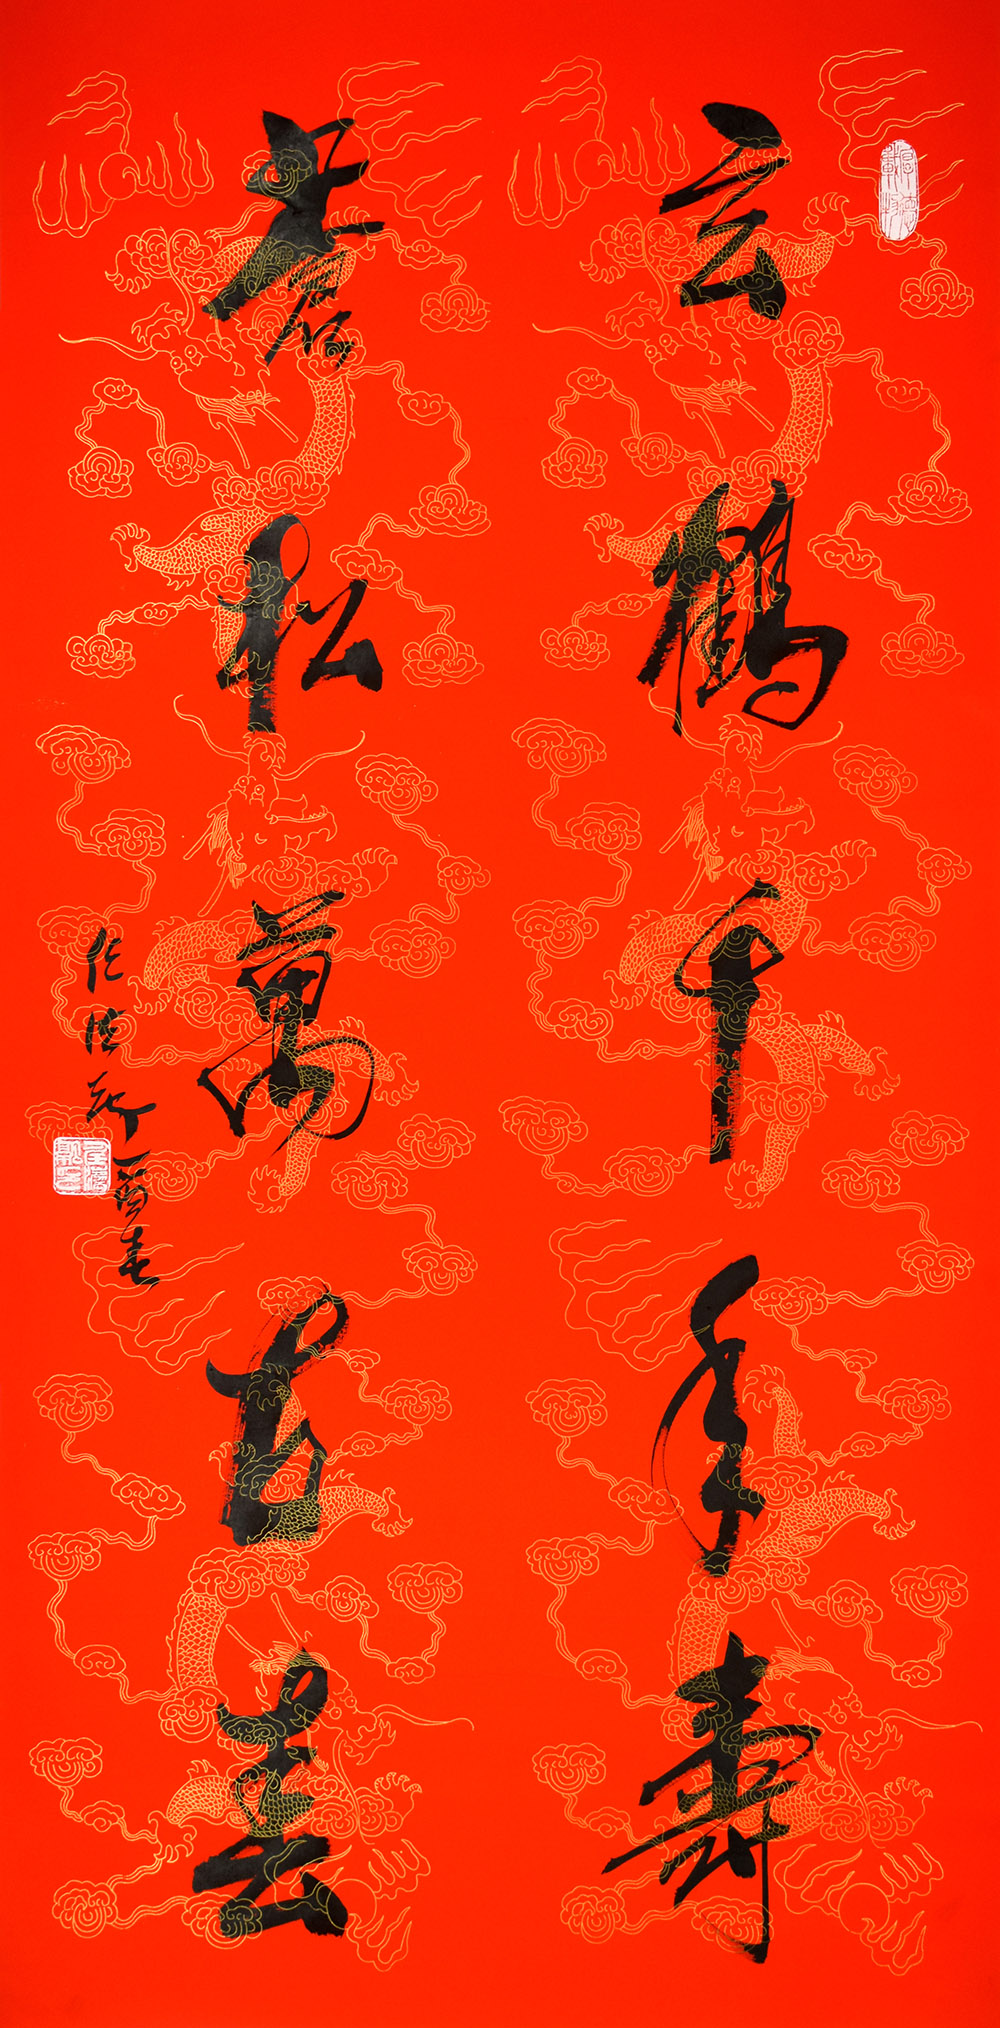 云鶴千年壽
蒼松萬古春
酉春